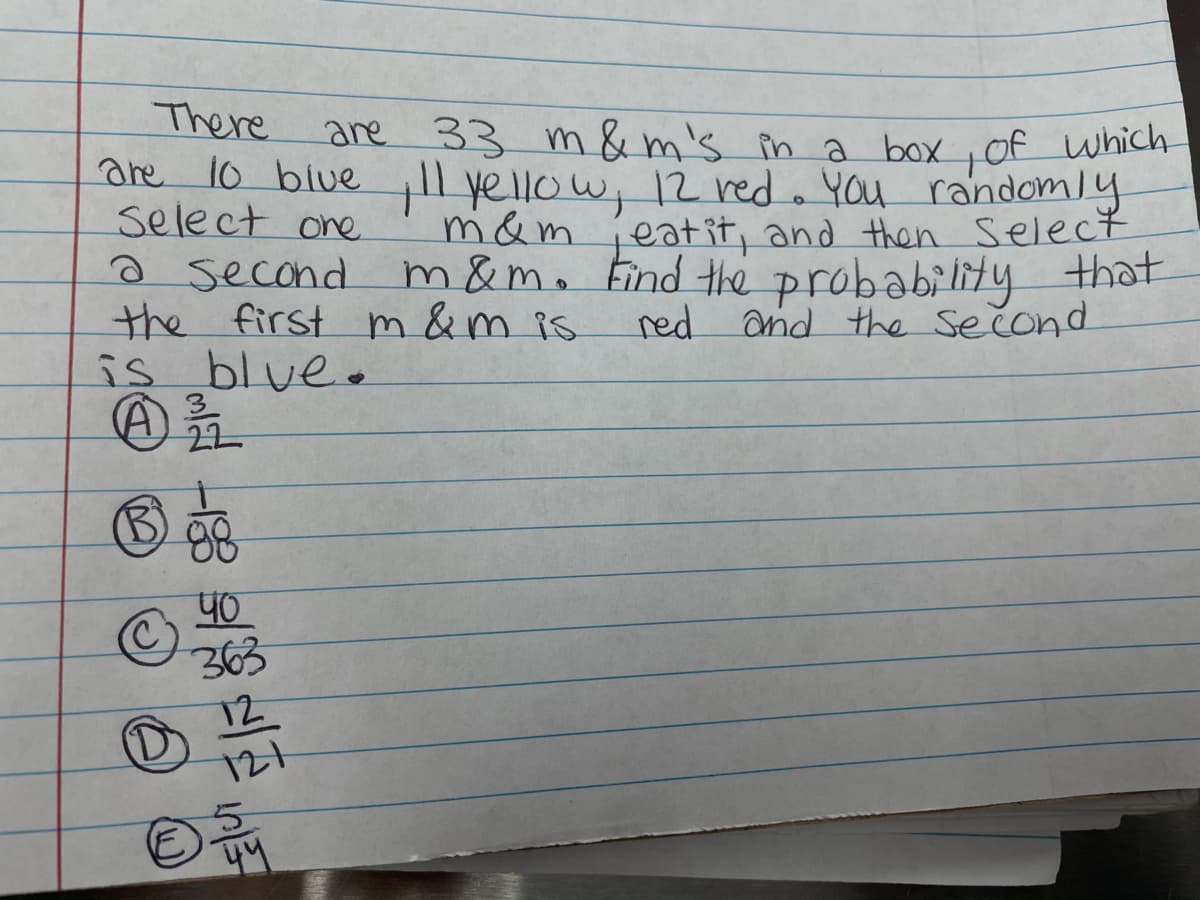 There are 33 m & m's in a box, of which
are 10 blue, 11 yellow, 12 red. You randomly
select one m&m, eat it, and then select
a second m & m. Find the probability that
the first m & m is red and the second
is blue.
(A) 3/22
(B) 1/88
(C) 40/363
(D) 12/121
(E) 5/44